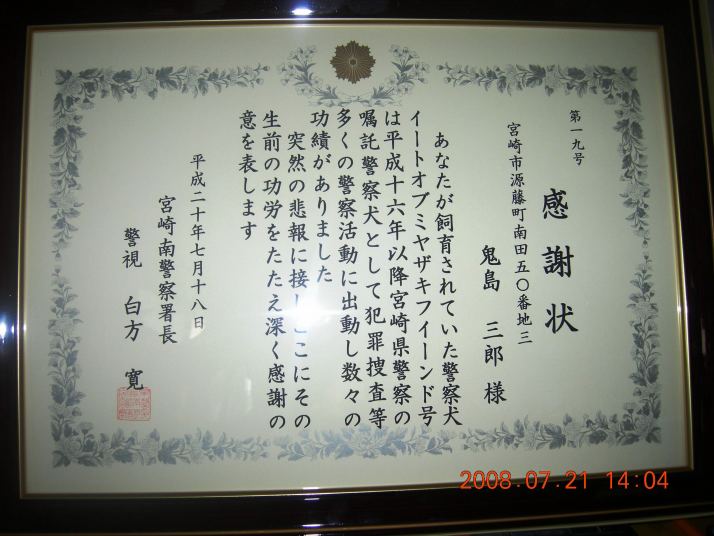 第一九号
感謝状
宮崎市源藤町南田五〇番地三
鬼島 三郎 様
あなたが飼育されていた警察犬
イートオブミヤザキフイーンド号
は平成十六年以降宮崎県警察の
嘱託警察犬として犯罪捜査等
多くの警察活動に出動し数々の
功績がありました
突然の悲報に接しここにその
生前の功労をたたえ深く感謝の
意を表します
平成二十年七月十八日
宮崎南警察署長
警視 白方 寛
2008.07.21 14:04